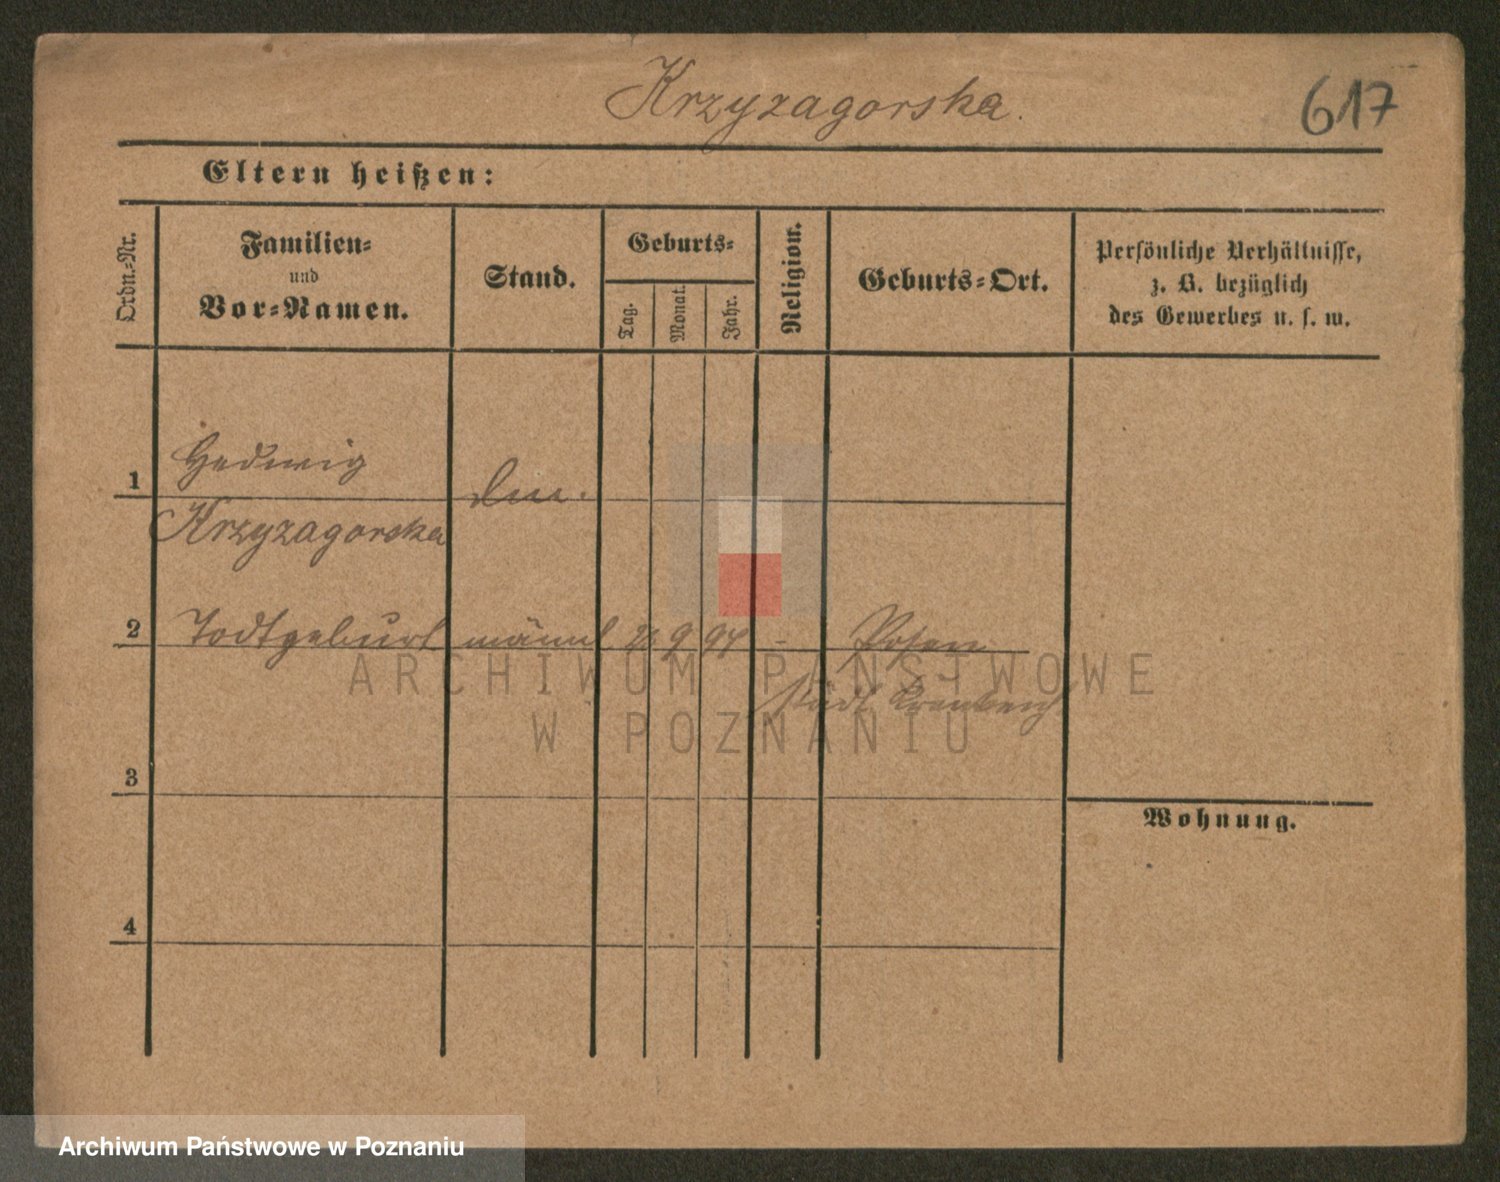 Krzyzagorska.
617
Eltern heißen:
Ordn.-Nr.
Familien-
und
Vor-Namen.
Stand.
Geburts-
Tag.
Monat.
Jahr.
Religion.
Geburts-Ort.
Persönliche Verhältnisse,
z. B. bezüglich
des Gewerbes u. s. w.
1 Hedwig
Krzyzagorska
2 Todtgeburt männl 9 97 - Posen
städt.
3
Wohnung.
4
ARCHIWUM PAŃSTWOWE
W POZNANIU
Archiwum Państwowe w Poznaniu